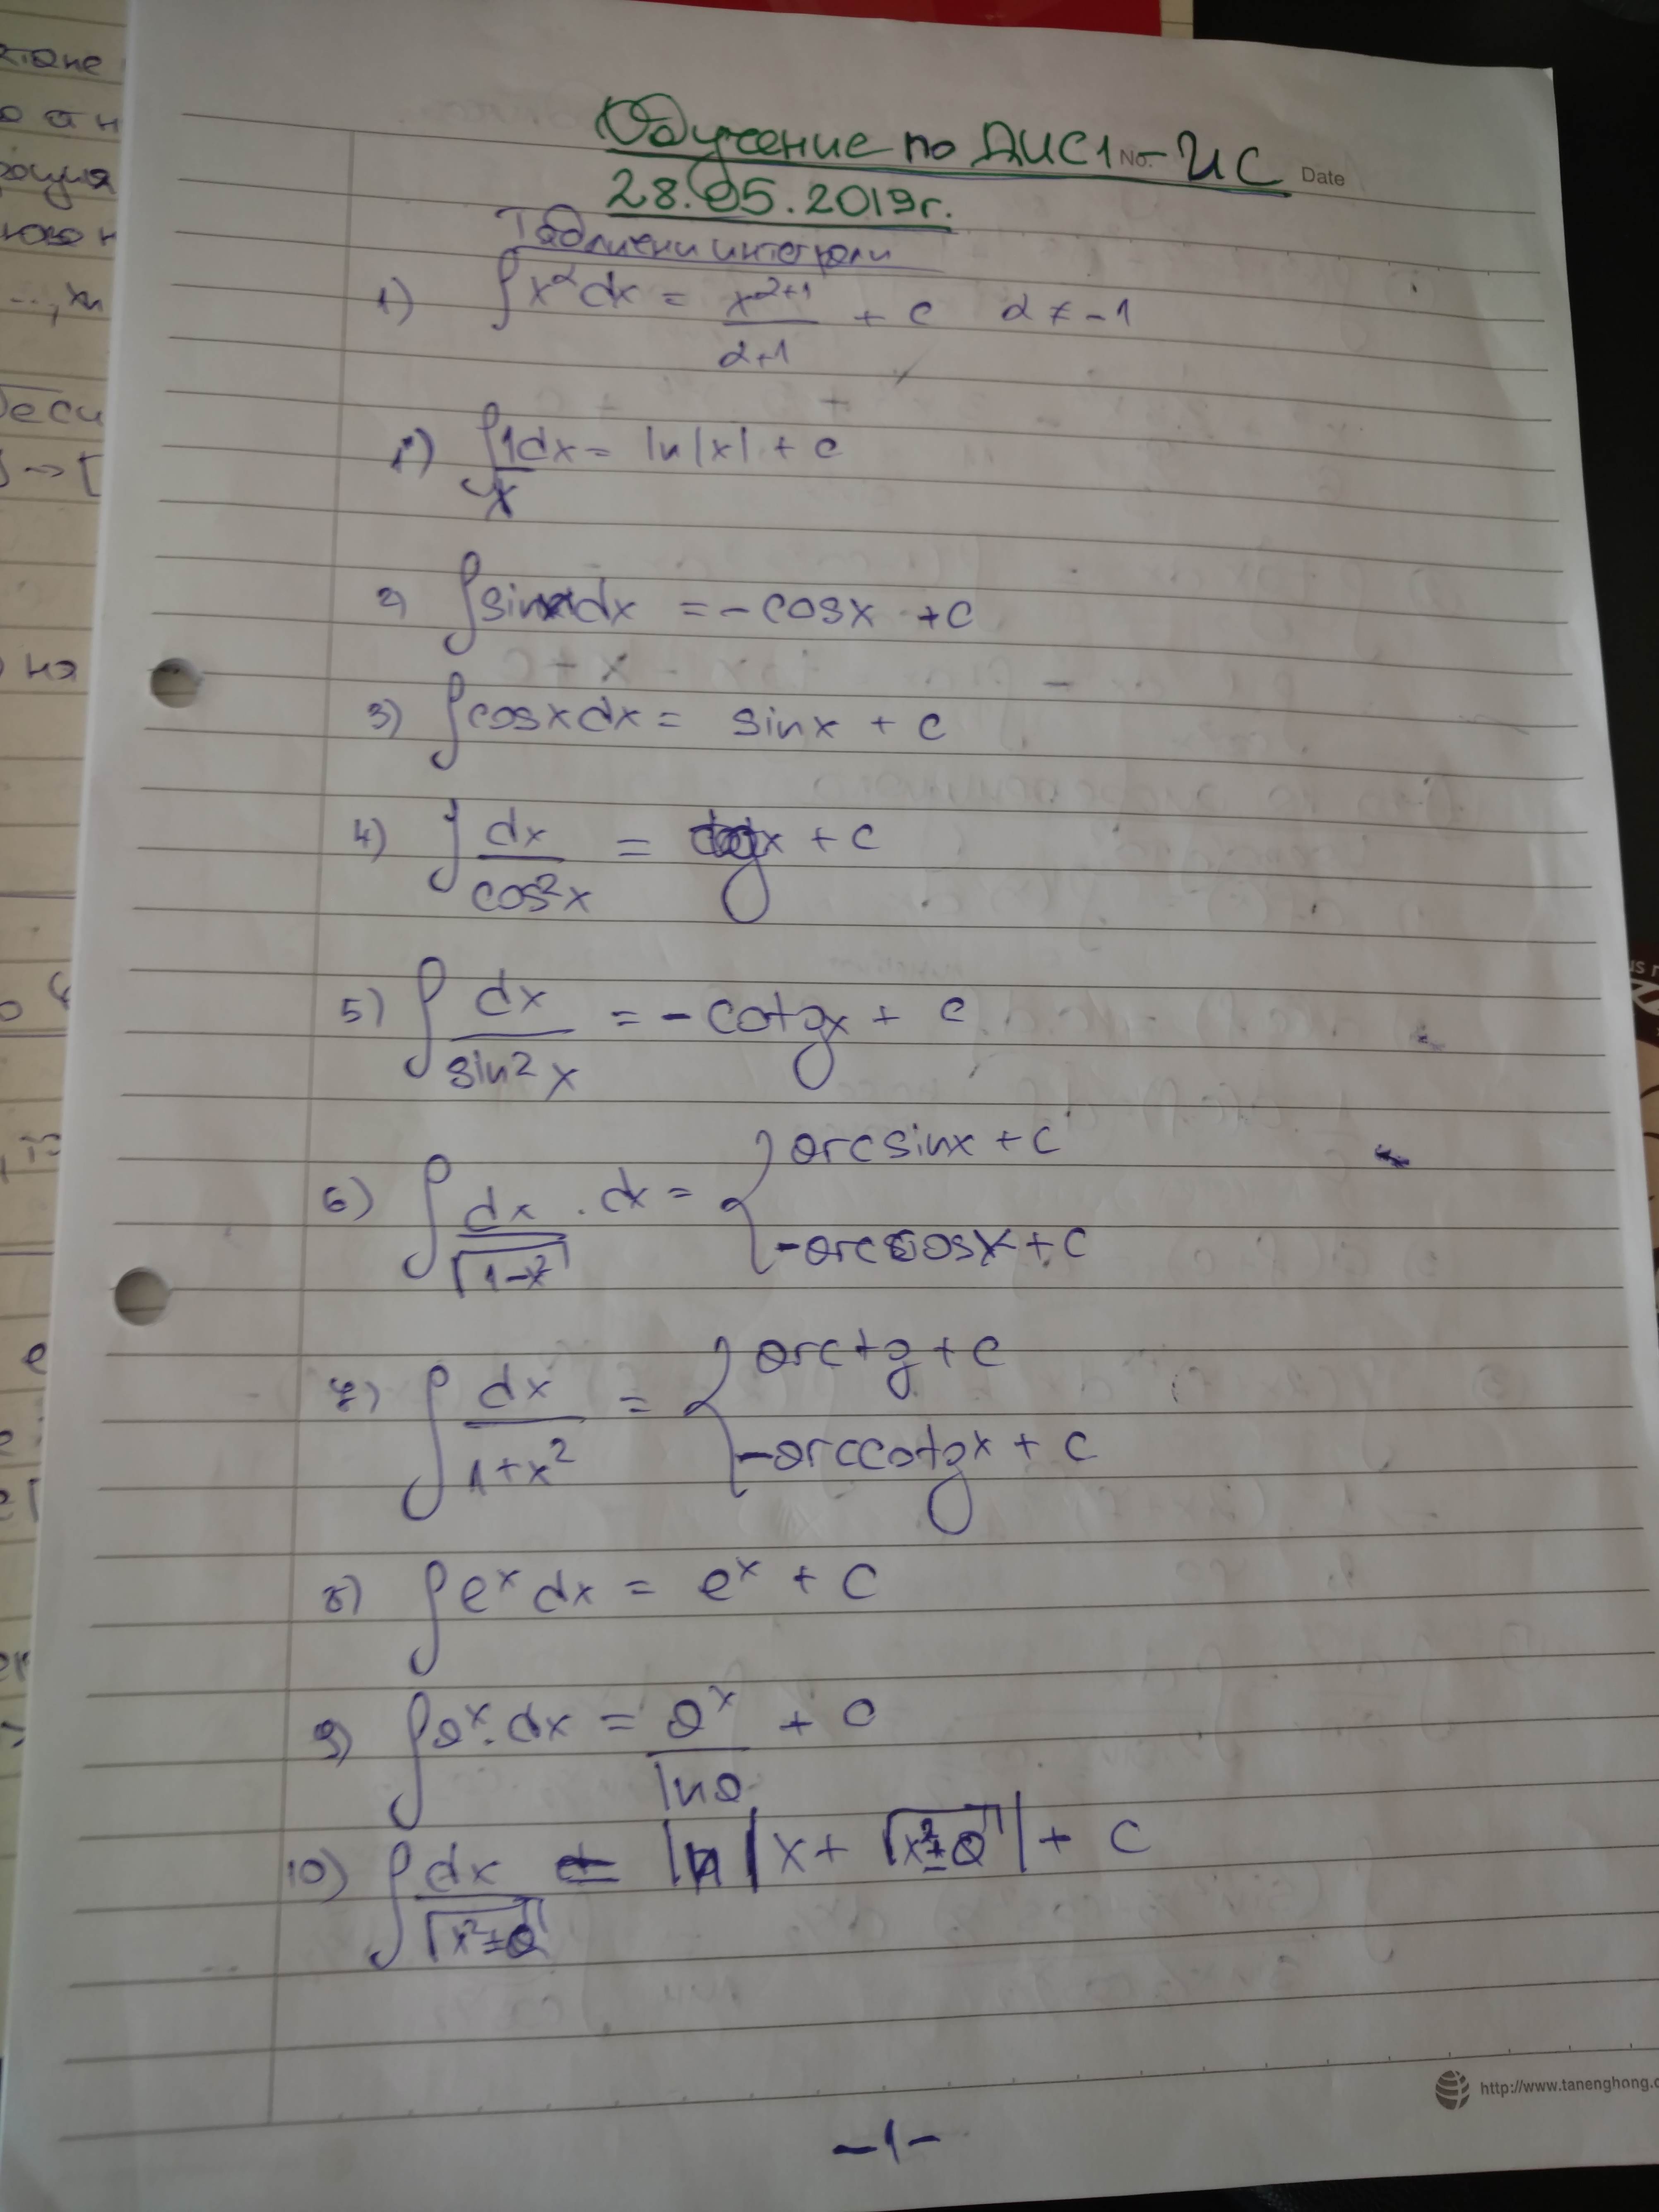 Обучение по ДИС1 - ИС
No. Date
28.05.2019г.
Таблични интеграли
1) ∫x^α dx = x^(α+1)/(α+1) + c   α ≠ -1
1') ∫1/x dx = ln|x| + c
2) ∫sinx dx = -cosx + c
3) ∫cosxdx = sinx + c
4) ∫dx/cos²x = tgx + c
5) ∫dx/sin²x = -cotgx + c
6) ∫dx/√(1-x²) . dx = { arcsinx + c
-arccosx + c
7) ∫dx/(1+x²) = { arctg + c
-arccotgx + c
8) ∫e^x dx = e^x + c
9) ∫a^x . dx = a^x/lna + c
10) ∫dx/√(x²±a) = ln|x + √(x²±a)| + c
http://www.tanenghong.c
-1-